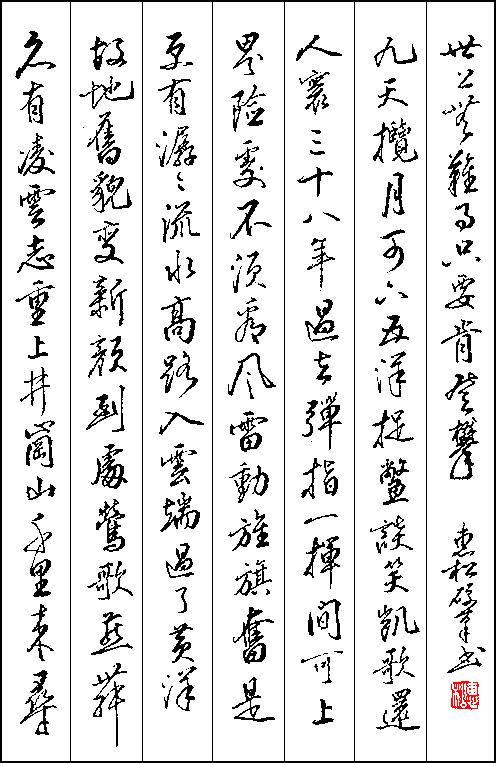 久有凌雲志重上井崗山千里來尋
故地舊貌變新顏到處鶯歌燕舞
更有潺々流水高路入雲端過了黃洋
界險處不須看風雷動旌旗奮是
人寰三十八年過去彈指一揮間可上
九天攬月可下五洋捉鱉談笑凱歌還
世上無難事只要肯登攀
惠松硬筆书